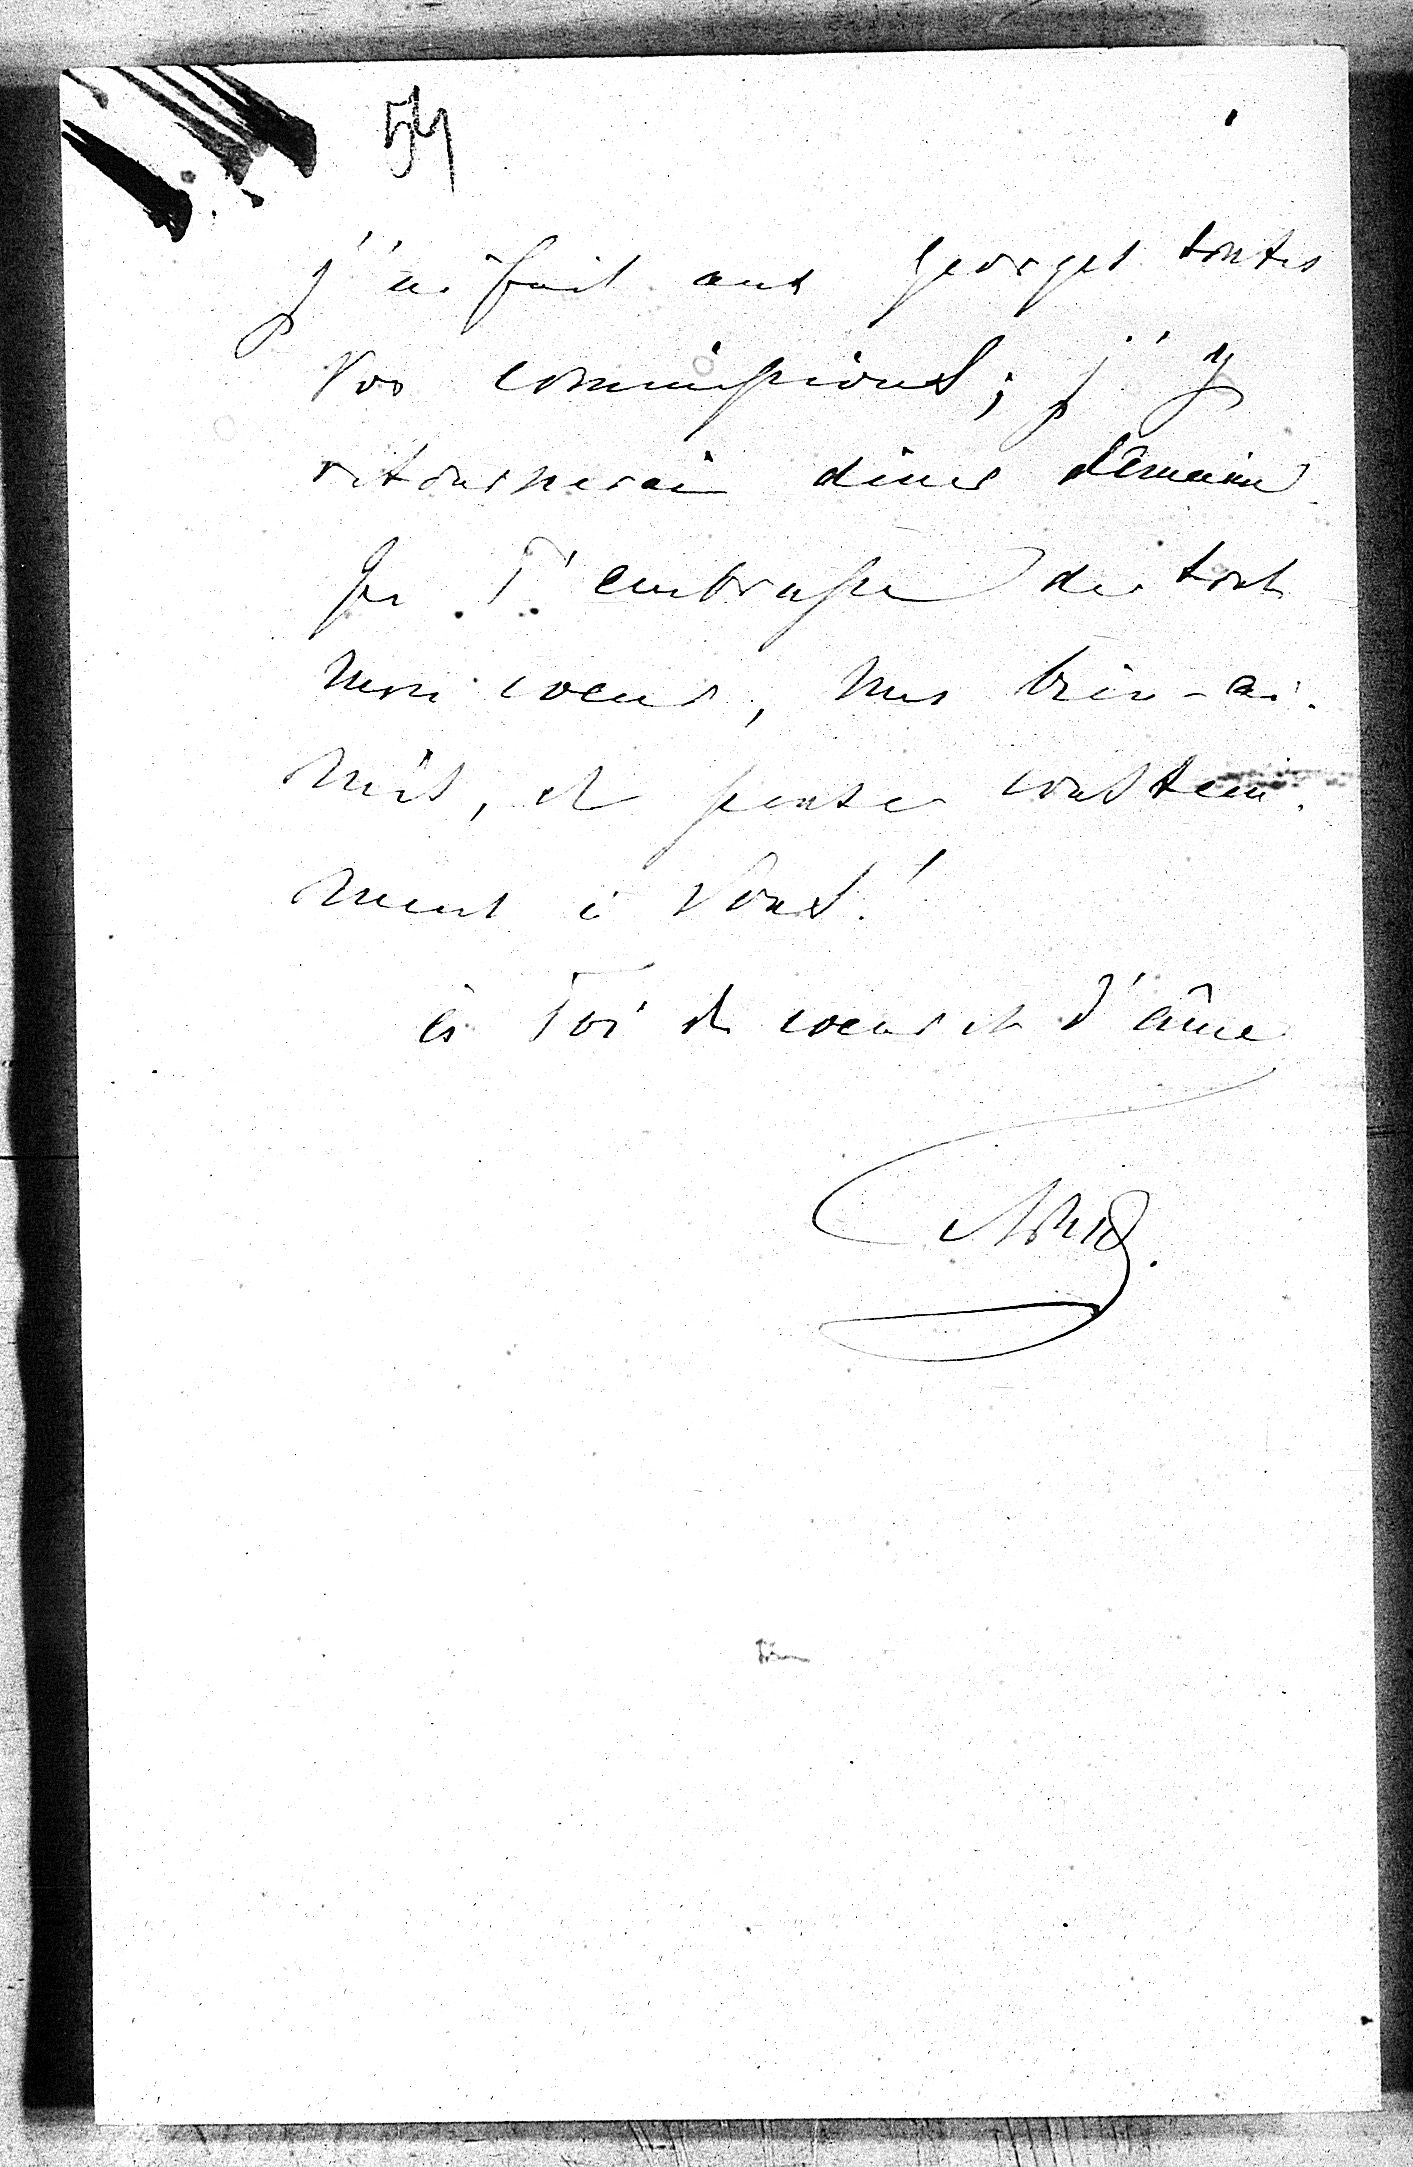 54
j'ai fait aux Georges toutes
vos commissions; j'y
retournerai diner demain
Je t'embrasse de tout
mon coeur, mes bien-ai-
més, et pense constam-
ment à vous!
à toi de coeur et d'âme